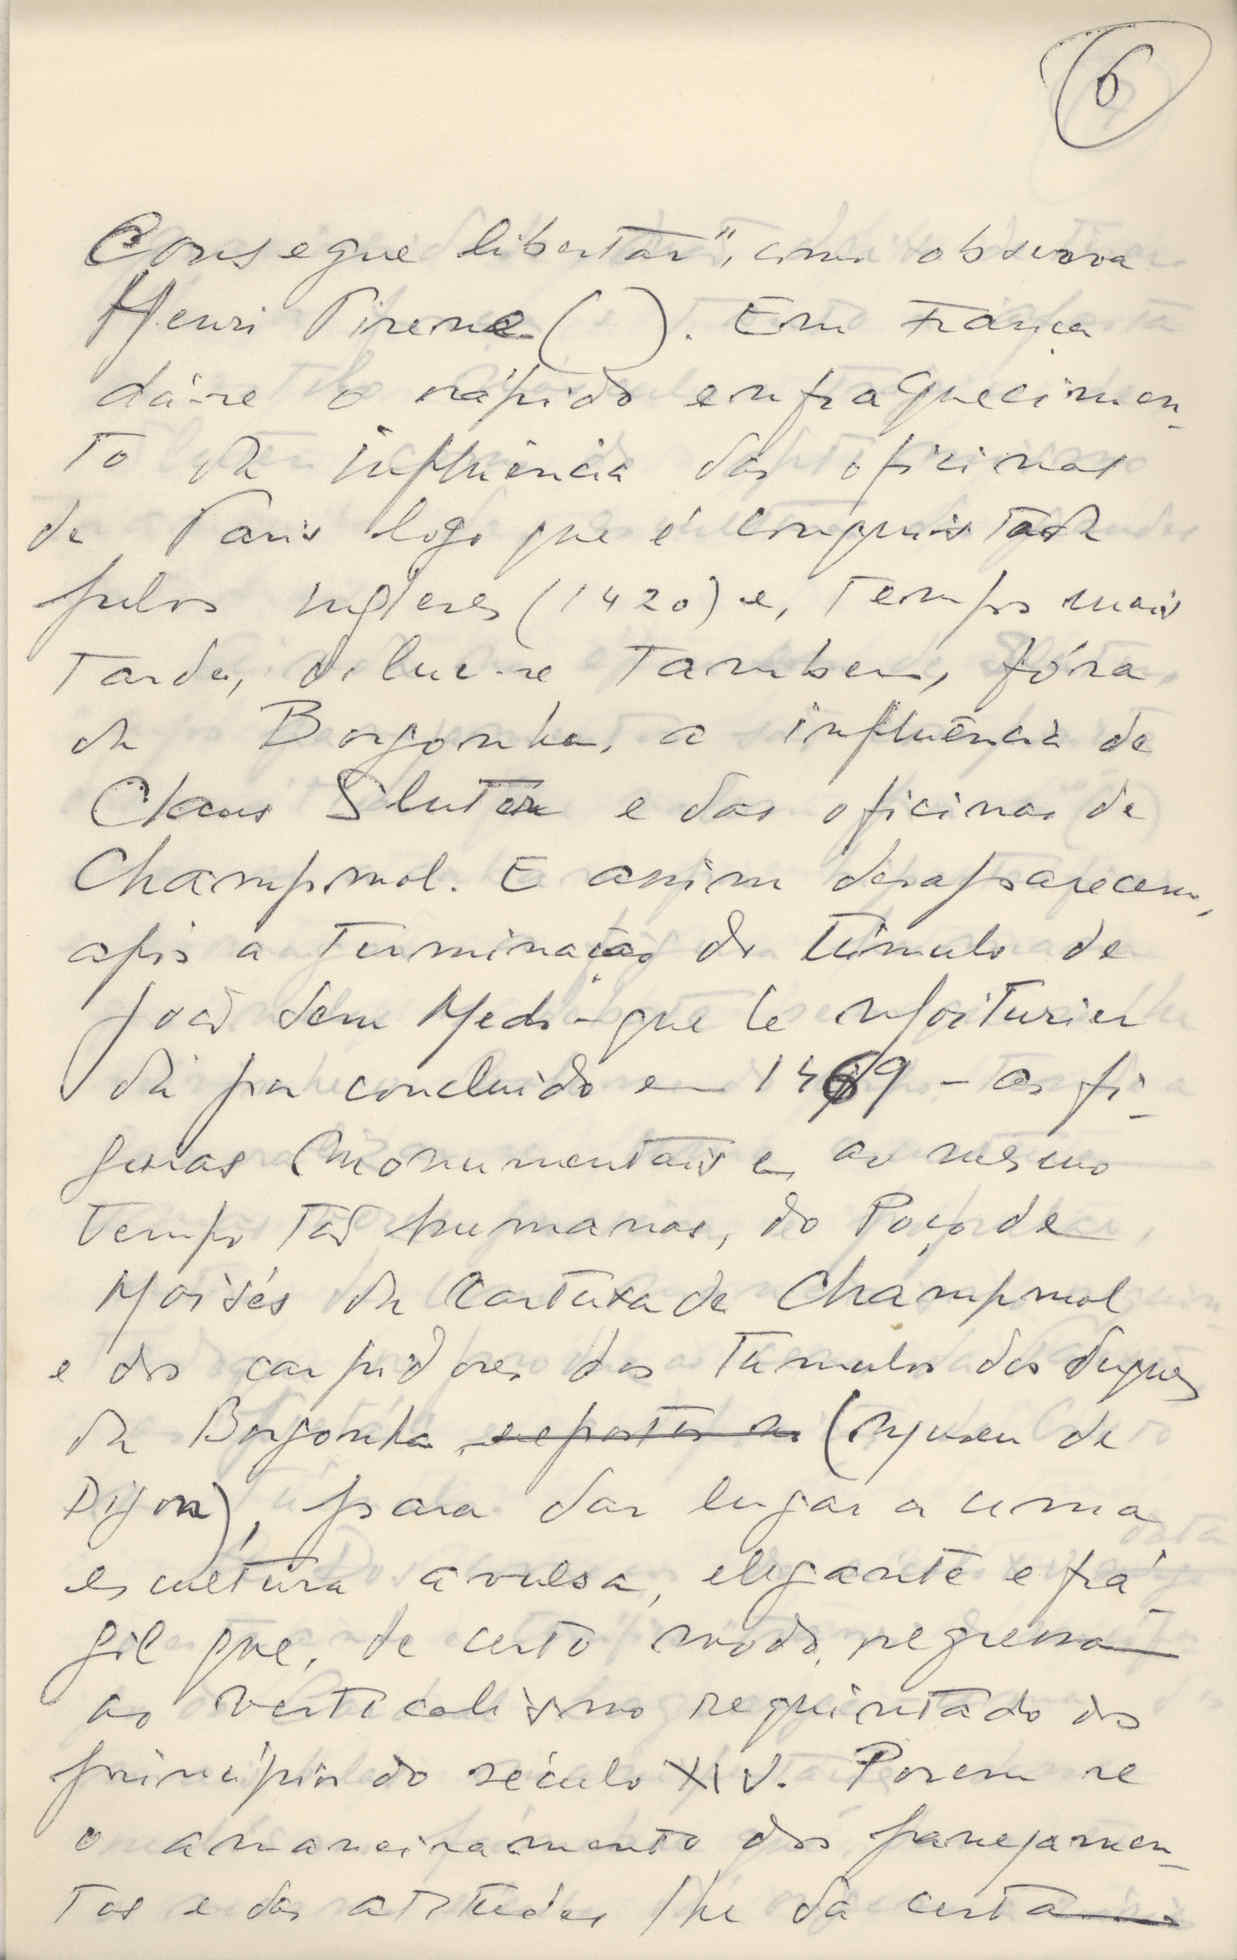 6
Consegue libertar", como observa
Henri Pirene ( ). Em França
dá-se o rápido enfraquecimen-
to da influência das oficinas
de Paris logo que é conquistada
pelos ingleses (1420) e, tempos mais
tarde, dilue-se tambem, fóra
da Borgonha, a influência de
Claus Sluter e das oficinas de
Champmol. E assim desaparecem,
após a terminação do túmulo de
João sem Medo - que le Moiturier
dá por concluido em 1469 - as fi-
guras monumentais e, ao mesmo
tempo tão humanas, do Poço de
Moisés da Cartuxa de Champmol
e dos carpidores dos tumulos dos duques
da Borgonha (Museu de
Dijon), para dar lugar a uma
escultura avulsa, elegante e frá-
gil que, de certo modo, regressa
ao verticalismo requintado dos
princípios do século XIV. Porem se
o amaneiramento dos panejamen-
tos e das atitudes lhe dá certa